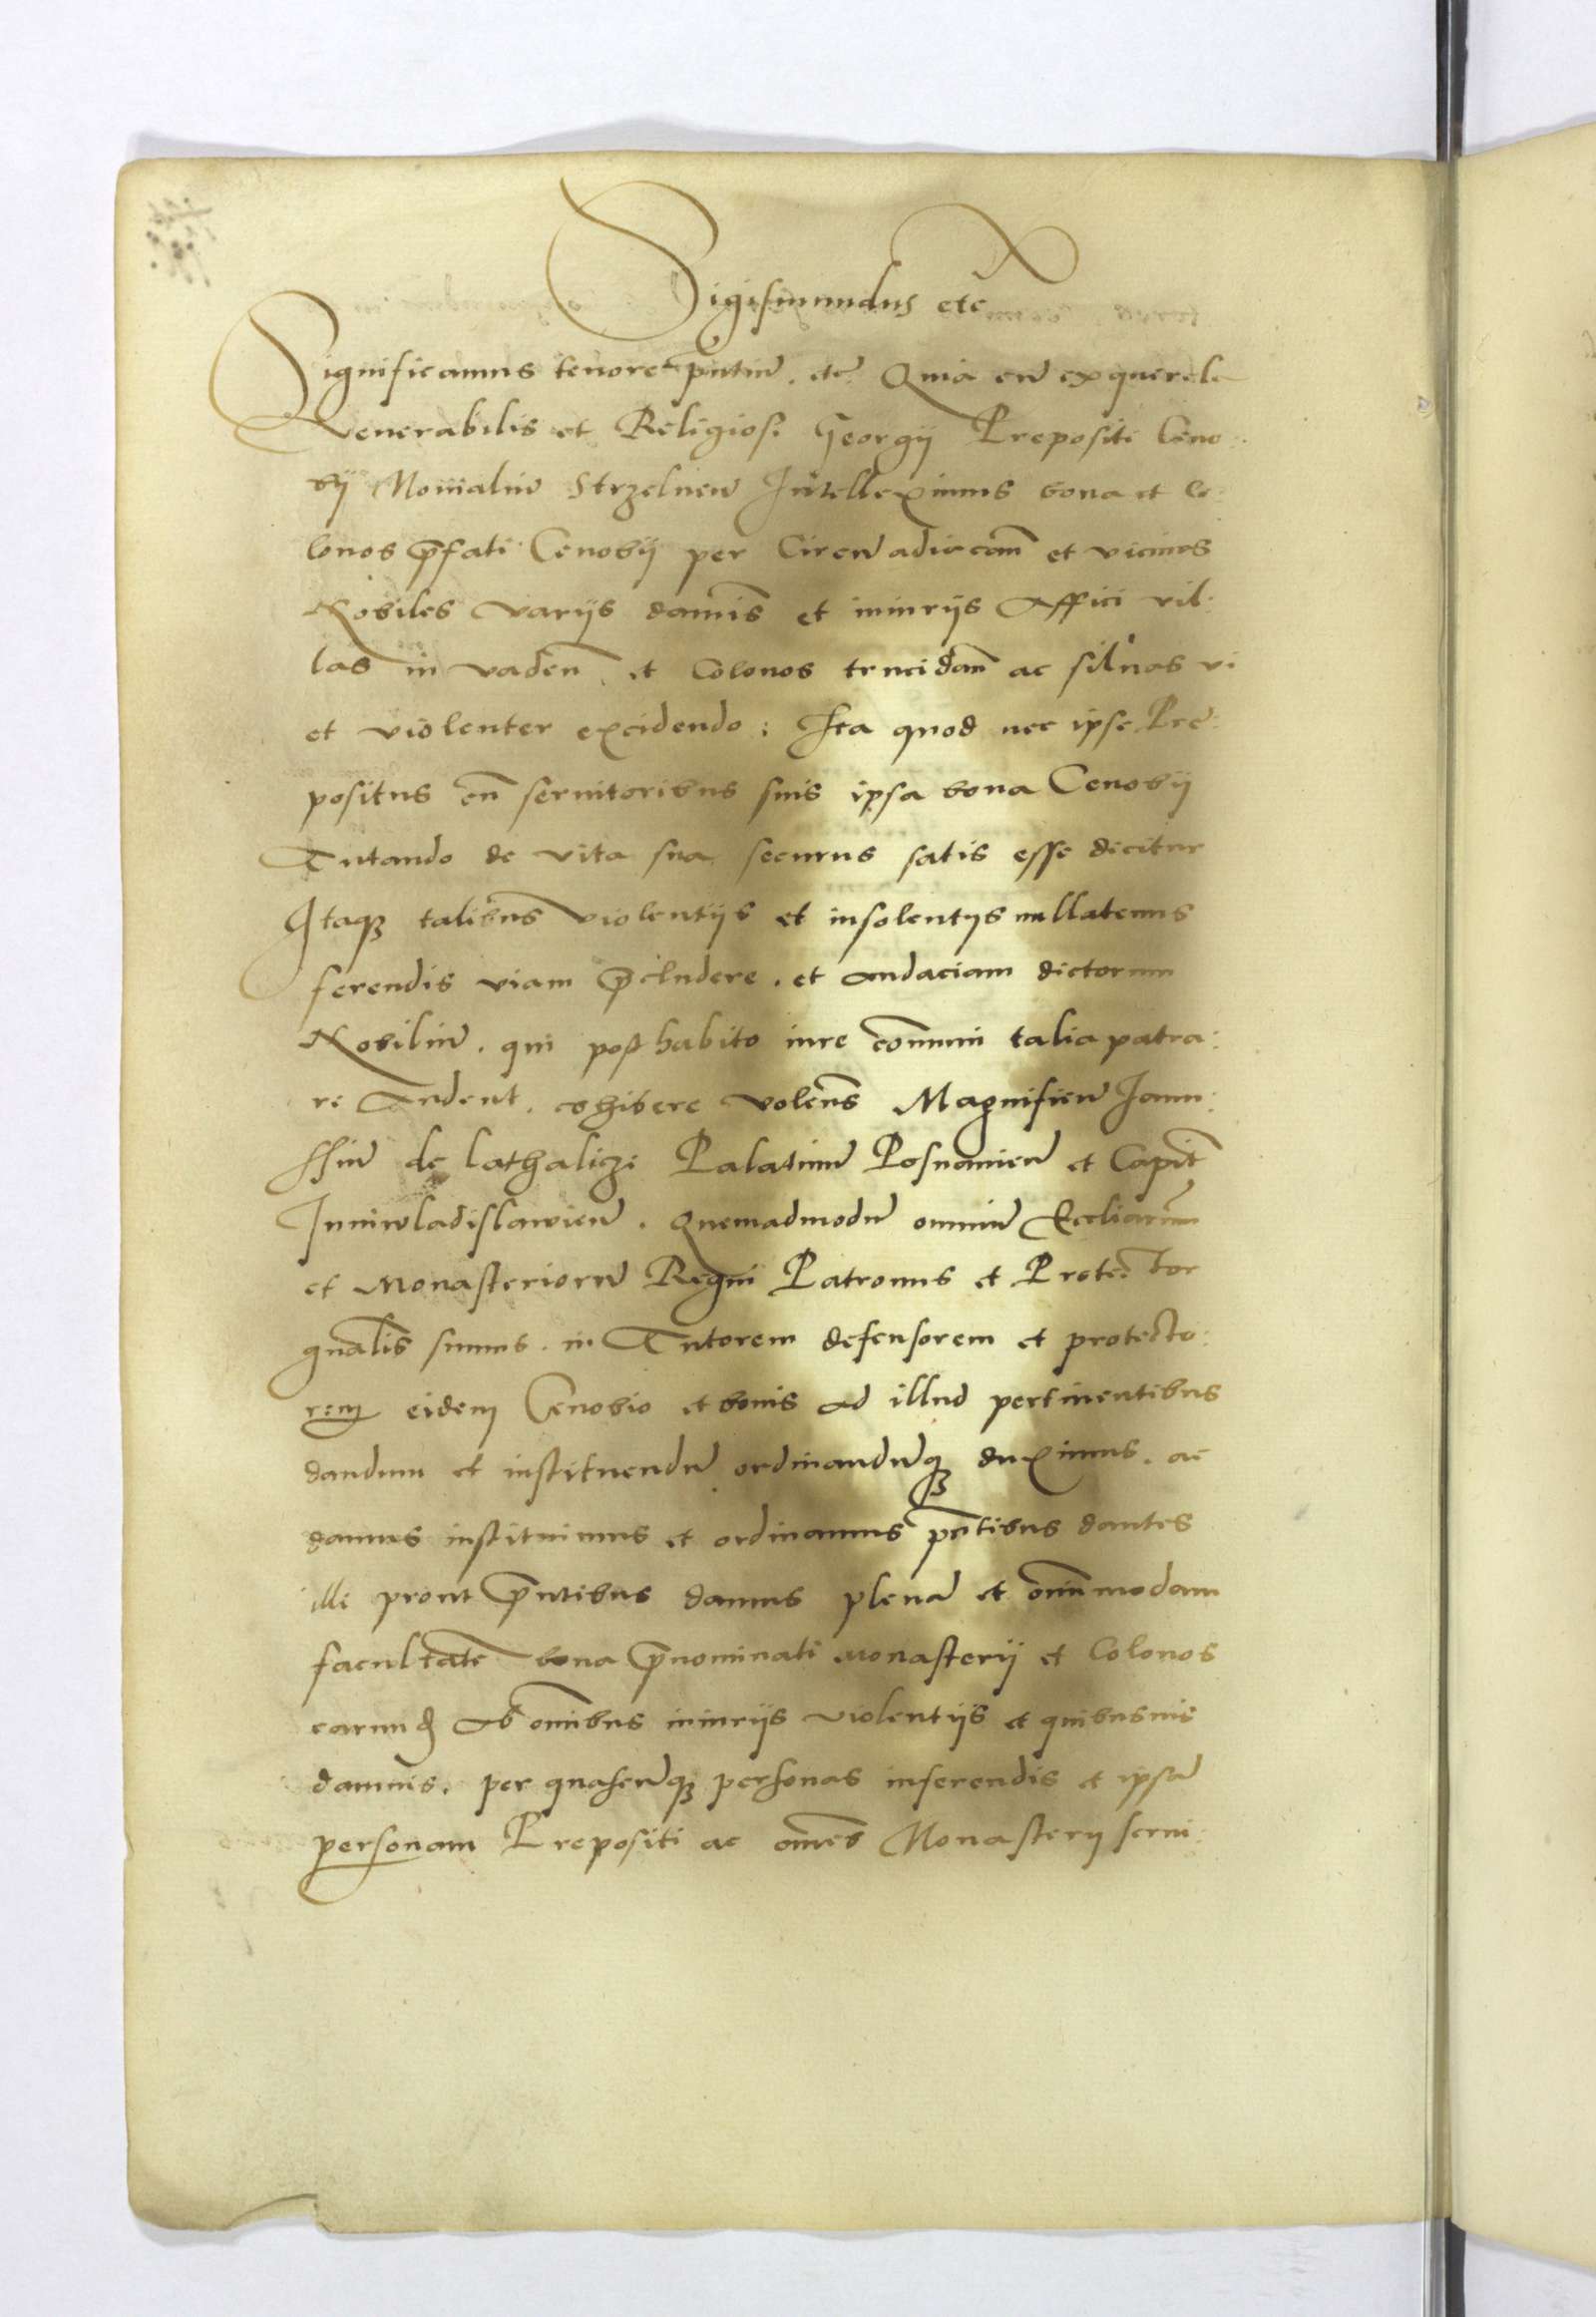 Sigismundus etc
Significamus tenore pntiu. etc. Quia cu ex querela
Venerabilis et Religiosi Georgij Prepositi Ceno:
bij Monialiu Strzelnen Intelleximus bona et Co:
lonos pfati Cenobij per Circu adiacean et vicinos
Nobiles varijs damis et iniurijs Affici vil:
las in vaden et Colonos trucidan ac siluas vi
et violenter excidendo: Ita quod nec ipse Pre:
positus cu seruitoribus suis ipsa bona Cenobij
Tutando de vita sua securus satis esse dicitur
Itaq talibus violentijs et insolentijs nullatenus
ferendis viam pcludere. et audaciam dictorum
Nobiliu. qui post habito iure comuni talia patra:
re Audent. cohibere volens Magnificu Ianu:
ssiu de Lathaliczi Palatinu Posnanien et Capit
Iuniwladislawien. Quemadmodu omniu Eccliarum
et Monasterioru Regni Patronus et Protector
gnalis sumus. in Tutorem defensorem et protecto:
rem eidem Cenobio et bonis ad illud pertinentibus
dandum et instituendu ordinanduq duximus. ac
damus instituimus et ordinamus pntibus dantes
illi prout pntibus damus plena et omimodam
facultate bona pnominati Monasterij et Colonos
earund ab omibus iniurijs violentijs et quibusuis
damnis. per quascuq personas inferendis et ipsa
personam Prepositi ac omes Monasterij serui: